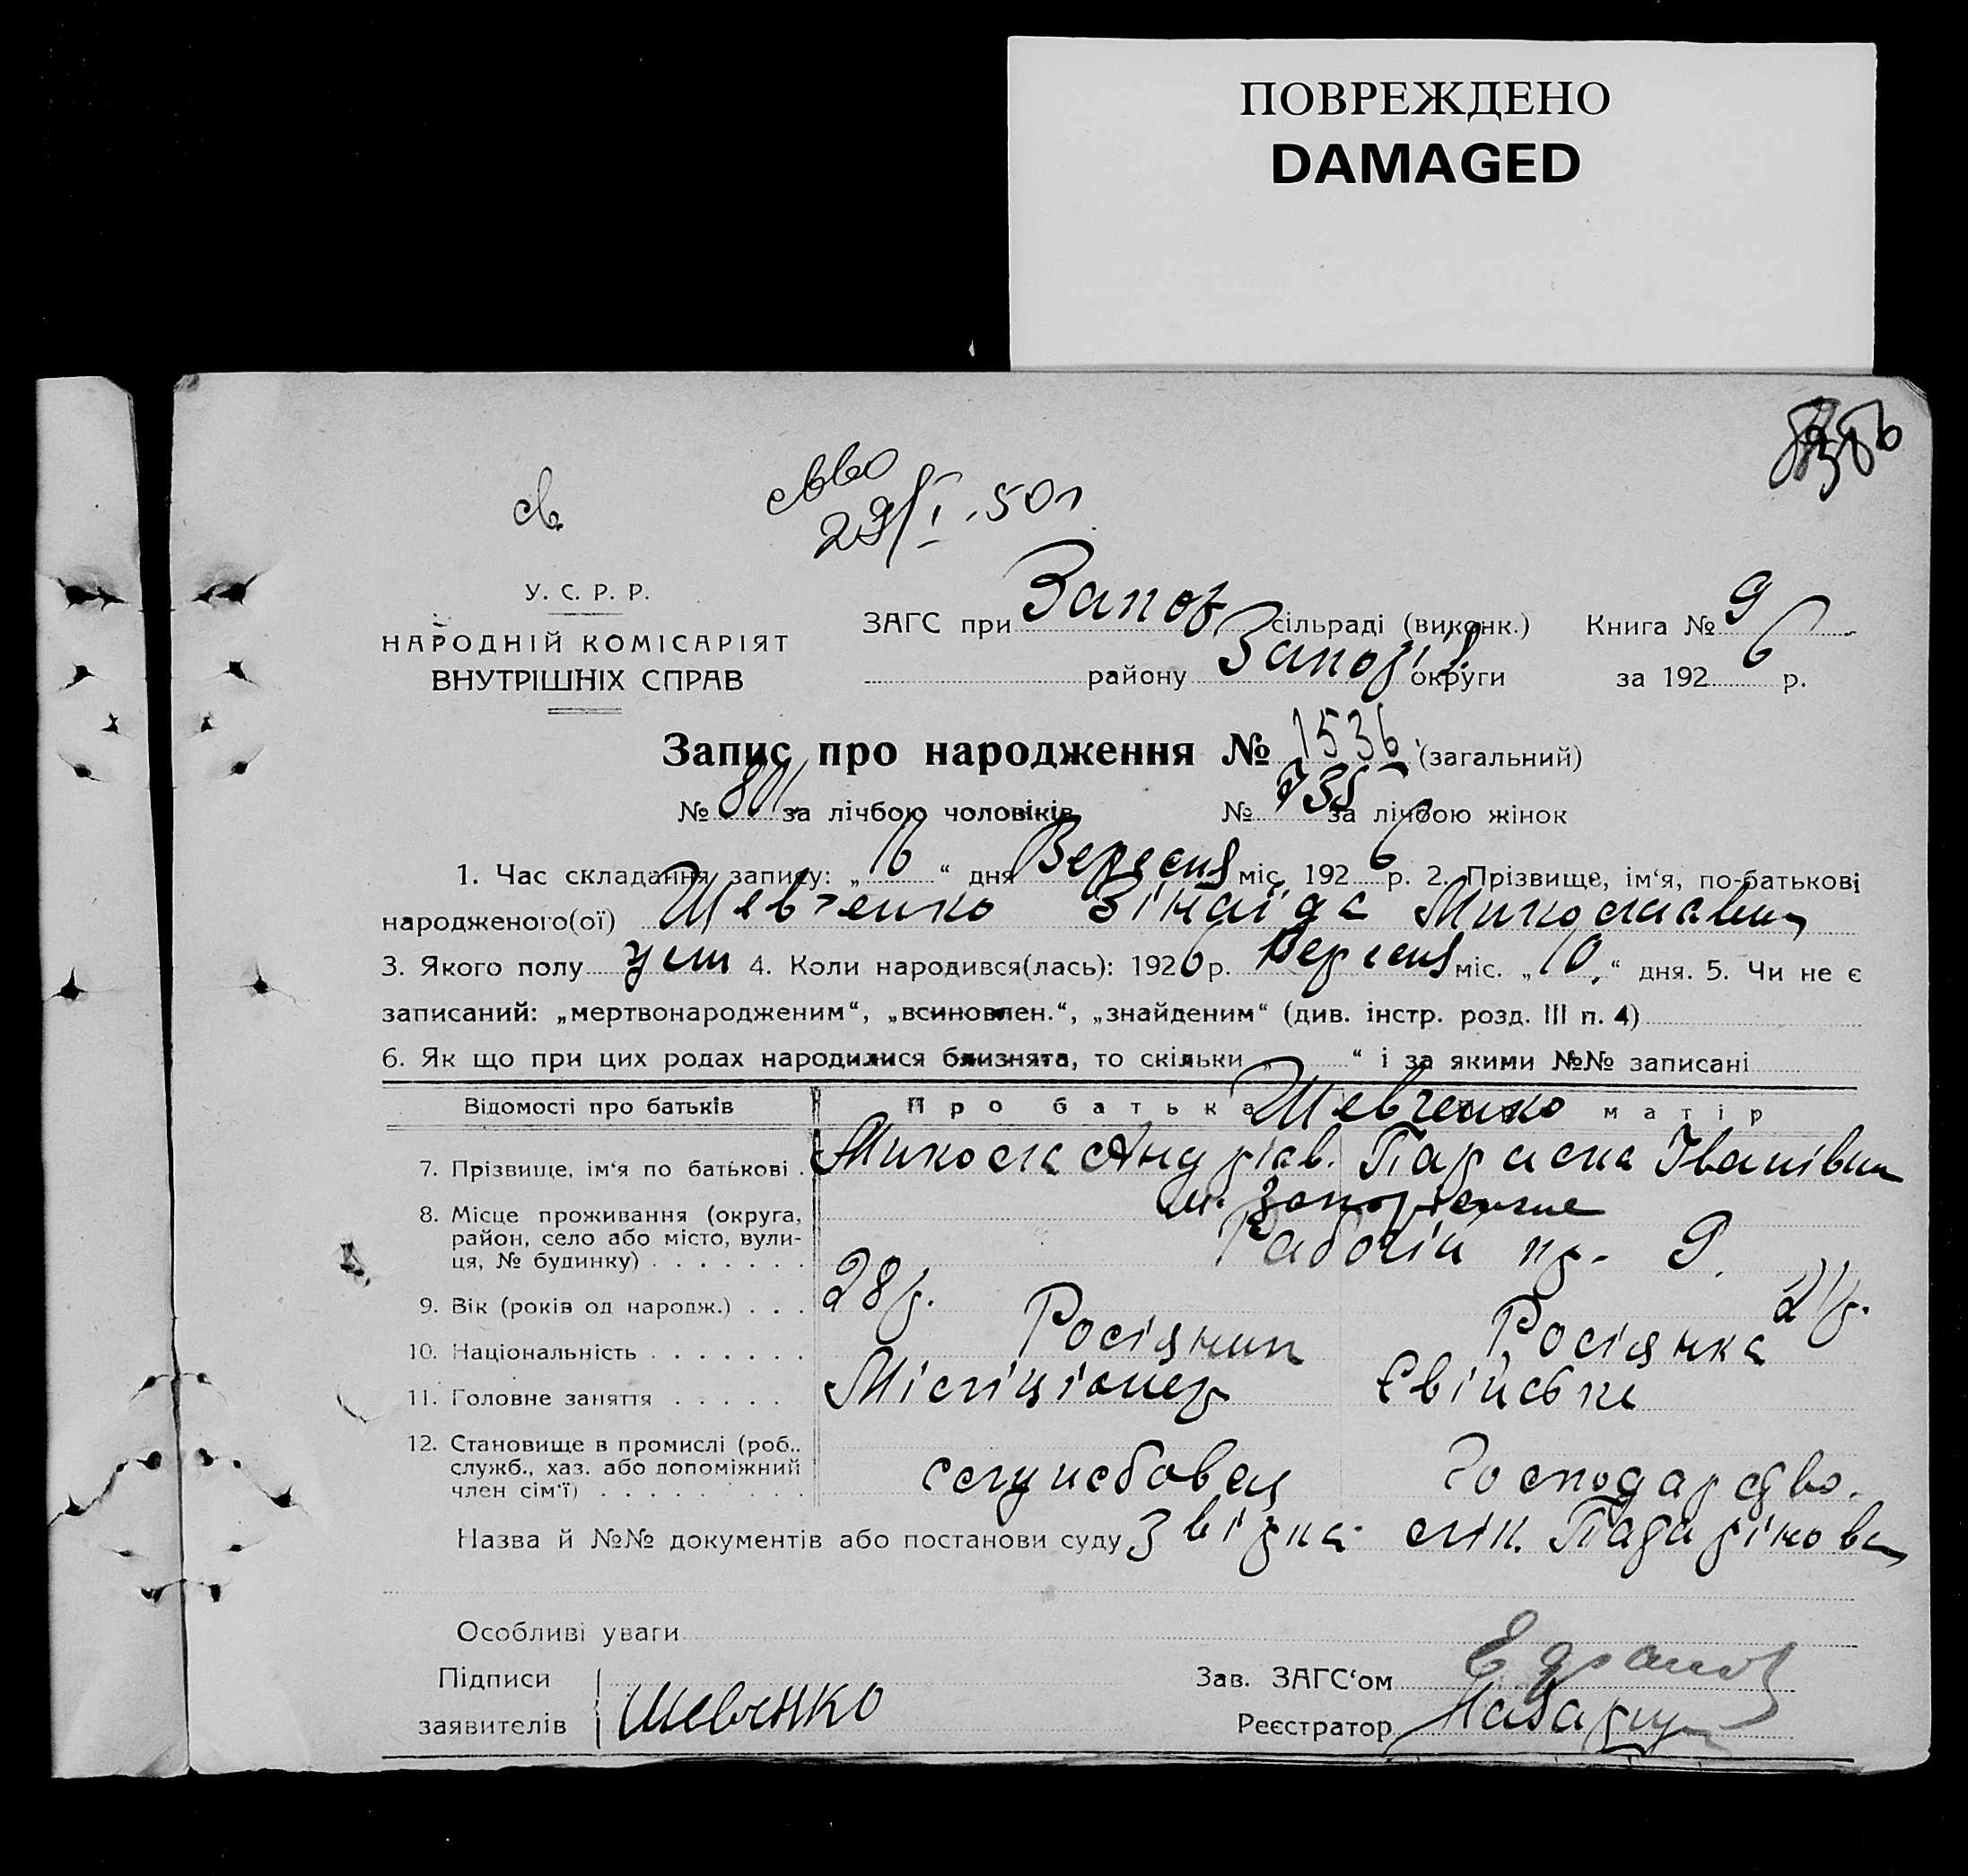 ПОВРЕЖДЕНО
DAMAGED
св.
29/I.50г.
У. С. Р. Р.
НАРОДНІЙ КОМІСАРІЯТ
ВНУТРІШНІХ СПРАВ
ЗАГС при Запоз сільраді (виконк.) Книга № 9
району Запоріз округи за 1926 р.
Запис про народження № 1536 (загальний)
№ 801 за лічбою чоловіків № 735 за лічбою жінок
1. Час складання запису: „16“ дня Вересня міс. 1926 р. 2. Прізвище, ім‘я, по-батькові
народженого(ої) Шевченко Зінаїда Миколаевна
3. Якого полу жін 4. Коли народився(лась): 1926 р. Вересня міс. „10“ дня. 5. Чи не є
записаний: „мертвонародженим“, „всиновлен.“, „знайденим“ (див. інстр. розд. III п. 4)
6. Як що при цих родах народилися близнята, то скільки „ “ і за якими №№ записані
Відомості про батьків Про батька Шевченко матір
7. Прізвище, ім‘я по батькові Микола Андрієв. Параска Іванівна
8. Місце проживання (округа, м. Запоріжжє
район, село або місто, вули- Рабочій пр. 9.
ця, № будинку)
9. Вік (років од народж.) 28 р. 21 р.
10. Національність Росіянин Росіянка
11. Головне заняття Міліціонер Свійське
12. Становище в промислі (роб.,
служб., хаз. або допоміжний службовец господарство.
член сім‘ї)
Назва й №№ документів або постанови суду Звірка лік.
Особливі уваги
Підписи Зав. ЗАГС‘ом
заявителів Шевченко Реєстратор